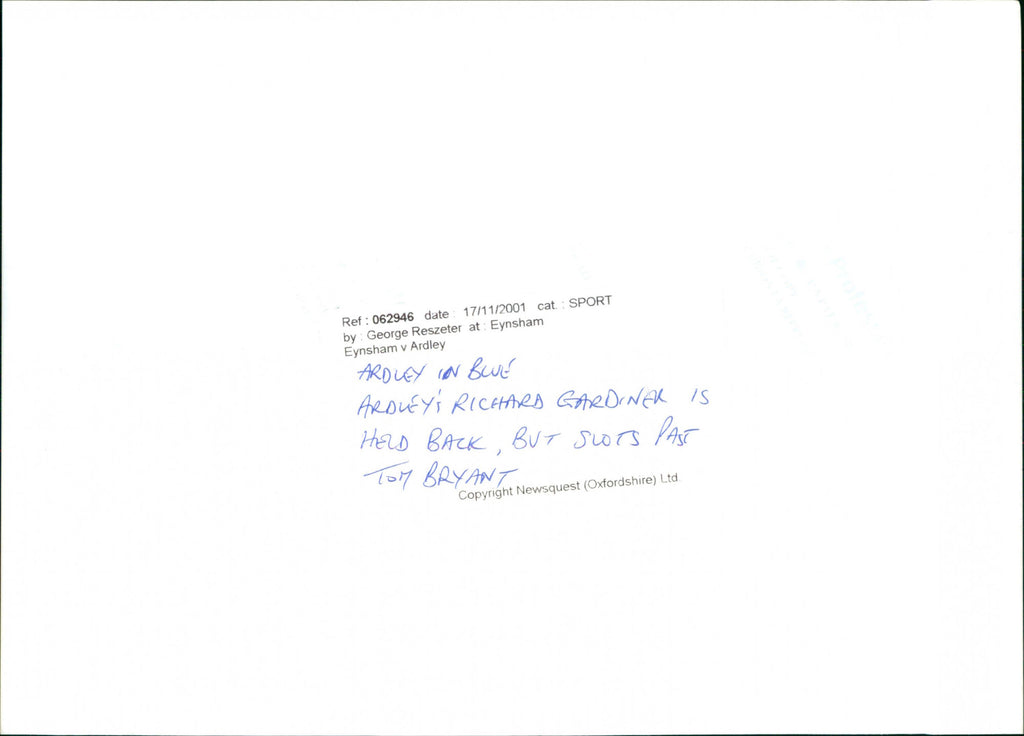 Ref : 062946 date : 17/11/2001 cat. : SPORT
by : George Reszeter at : Eynsham
Eynsham v Ardley
ARDLEY IN BLUE
ARDLEY'S RICHARD GARDINER IS
HELD BACK, BUT SLOTS PAST
TOM BRYANT
Copyright Newsquest (Oxfordshire) Ltd.